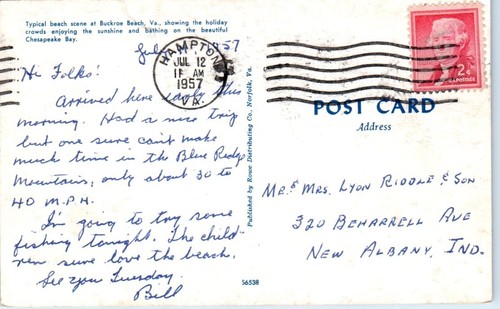 Typical beach scene at Buckroe Beach, Va., showing the holiday
crowds enjoying the sunshine and bathing on the beautiful
Chesapeake Bay.
HAMPTON
JUL 12
11 AM
1957
VA.
2¢
July 1957
Hi Folks:
Arrived here early this
morning. Had a nice trip
but one sure can't make
much time in the Blue Ridge
Mountains, only about 30 to
40 M.P.H.
I'm going to try some
fishing tonight. The child-
ren sure love the beach.
See you Tuesday.
Bill
Published by Rowe Distributing Co., Norfolk, Va.
56538
POST CARD
Address
Mr. & Mrs. Lyon Riddle & Son
320 Beharrell Ave
New Albany, Ind.